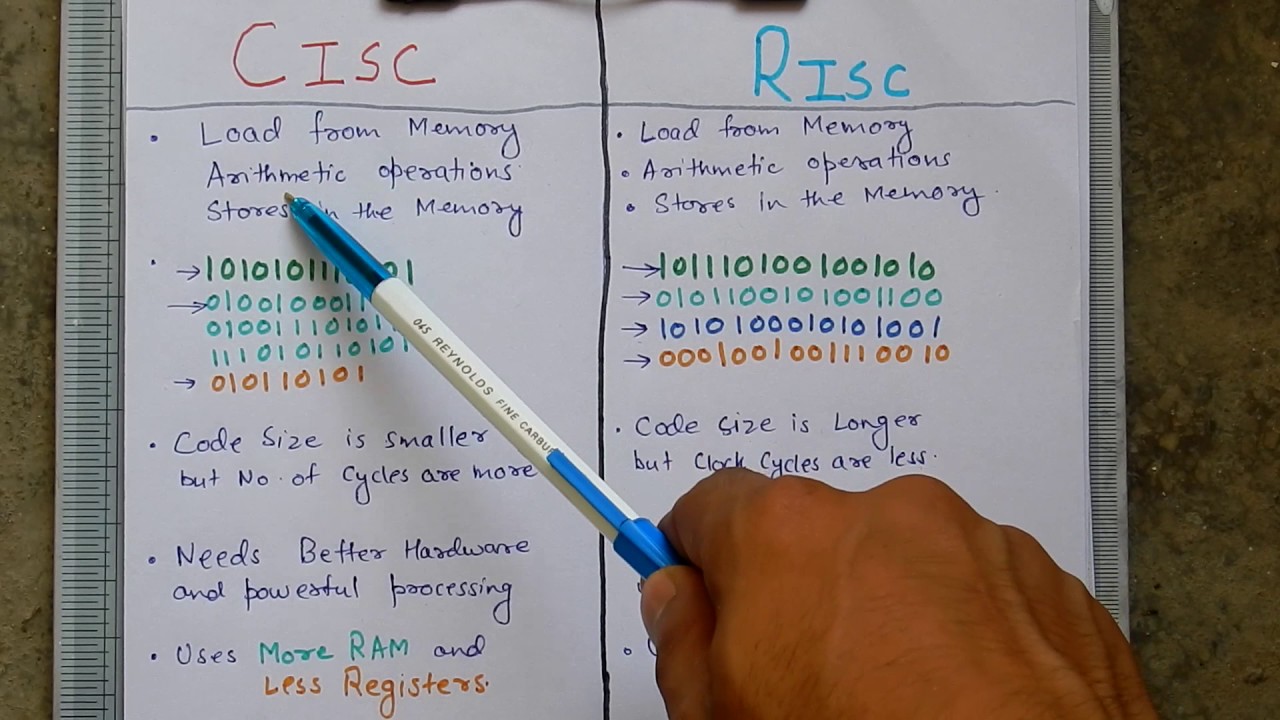 CISC
• Load from Memory
Arithmetic operations
Stores in the Memory
→ 
→ 
010011101011
11101011010
→ 010110101
• Code Size is smaller
but No. of Cycles are more
• Needs Better Hardware
and powerful processing
• Uses More RAM and
Less Registers.
RISC
• Load from Memory
• Arithmetic operations
• Stores in the Memory.
→ 1011101001001010
→ 0101100101001100
→ 1010100010101001
→ 0001001001110010
• Code size is Longer
but Clock Cycles are less.
045 REYNOLDS FINE CARBURE